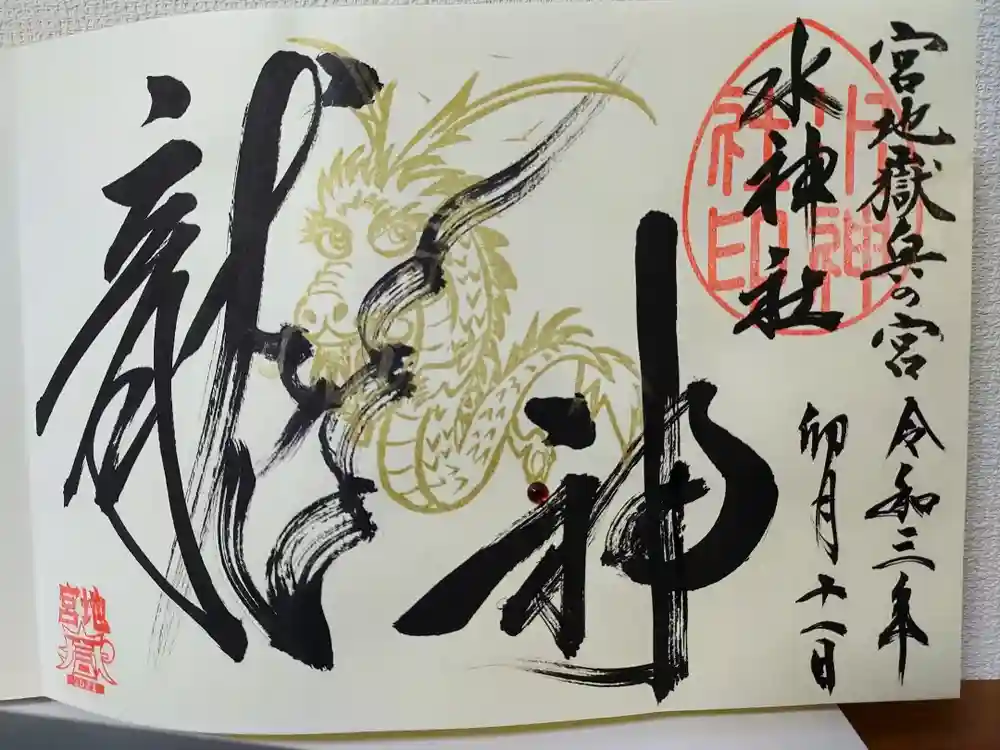 宮地嶽兵の宮
水神社
令和三年
卯月十一日
龍神
水神
社印
宮地
嶽
2021